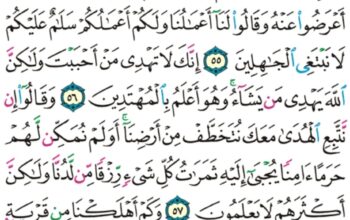 أَعْرَضُوا۟ عَنْهُ وَقَالُوا۟ لَنَآ أَعْمَٰلُنَا وَلَكُمْ أَعْمَٰلُكُمْ سَلَٰمٌ عَلَيْكُمْ
لَا نَبْتَغِى ٱلْجَٰهِلِينَ ٥٥ إِنَّكَ لَا تَهْدِى مَنْ أَحْبَبْتَ وَلَٰكِنَّ
ٱللَّهَ يَهْدِى مَن يَشَآءُ ۚ وَهُوَ أَعْلَمُ بِٱلْمُهْتَدِينَ ٥٦ وَقَالُوٓا۟ إِن
نَّتَّبِعِ ٱلْهُدَىٰ مَعَكَ نُتَخَطَّفْ مِنْ أَرْضِنَآ ۚ أَوَلَمْ نُمَكِّن لَّهُمْ
حَرَمًا ءَامِنًا يُجْبَىٰٓ إِلَيْهِ ثَمَرَٰتُ كُلِّ شَىْءٍ رِّزْقًا مِّن لَّدُنَّا وَلَٰكِنَّ
أَكْثَرَهُمْ لَا يَعْلَمُونَ ٥٧ وَكَمْ أَهْلَكْنَا مِن قَرْيَةٍ